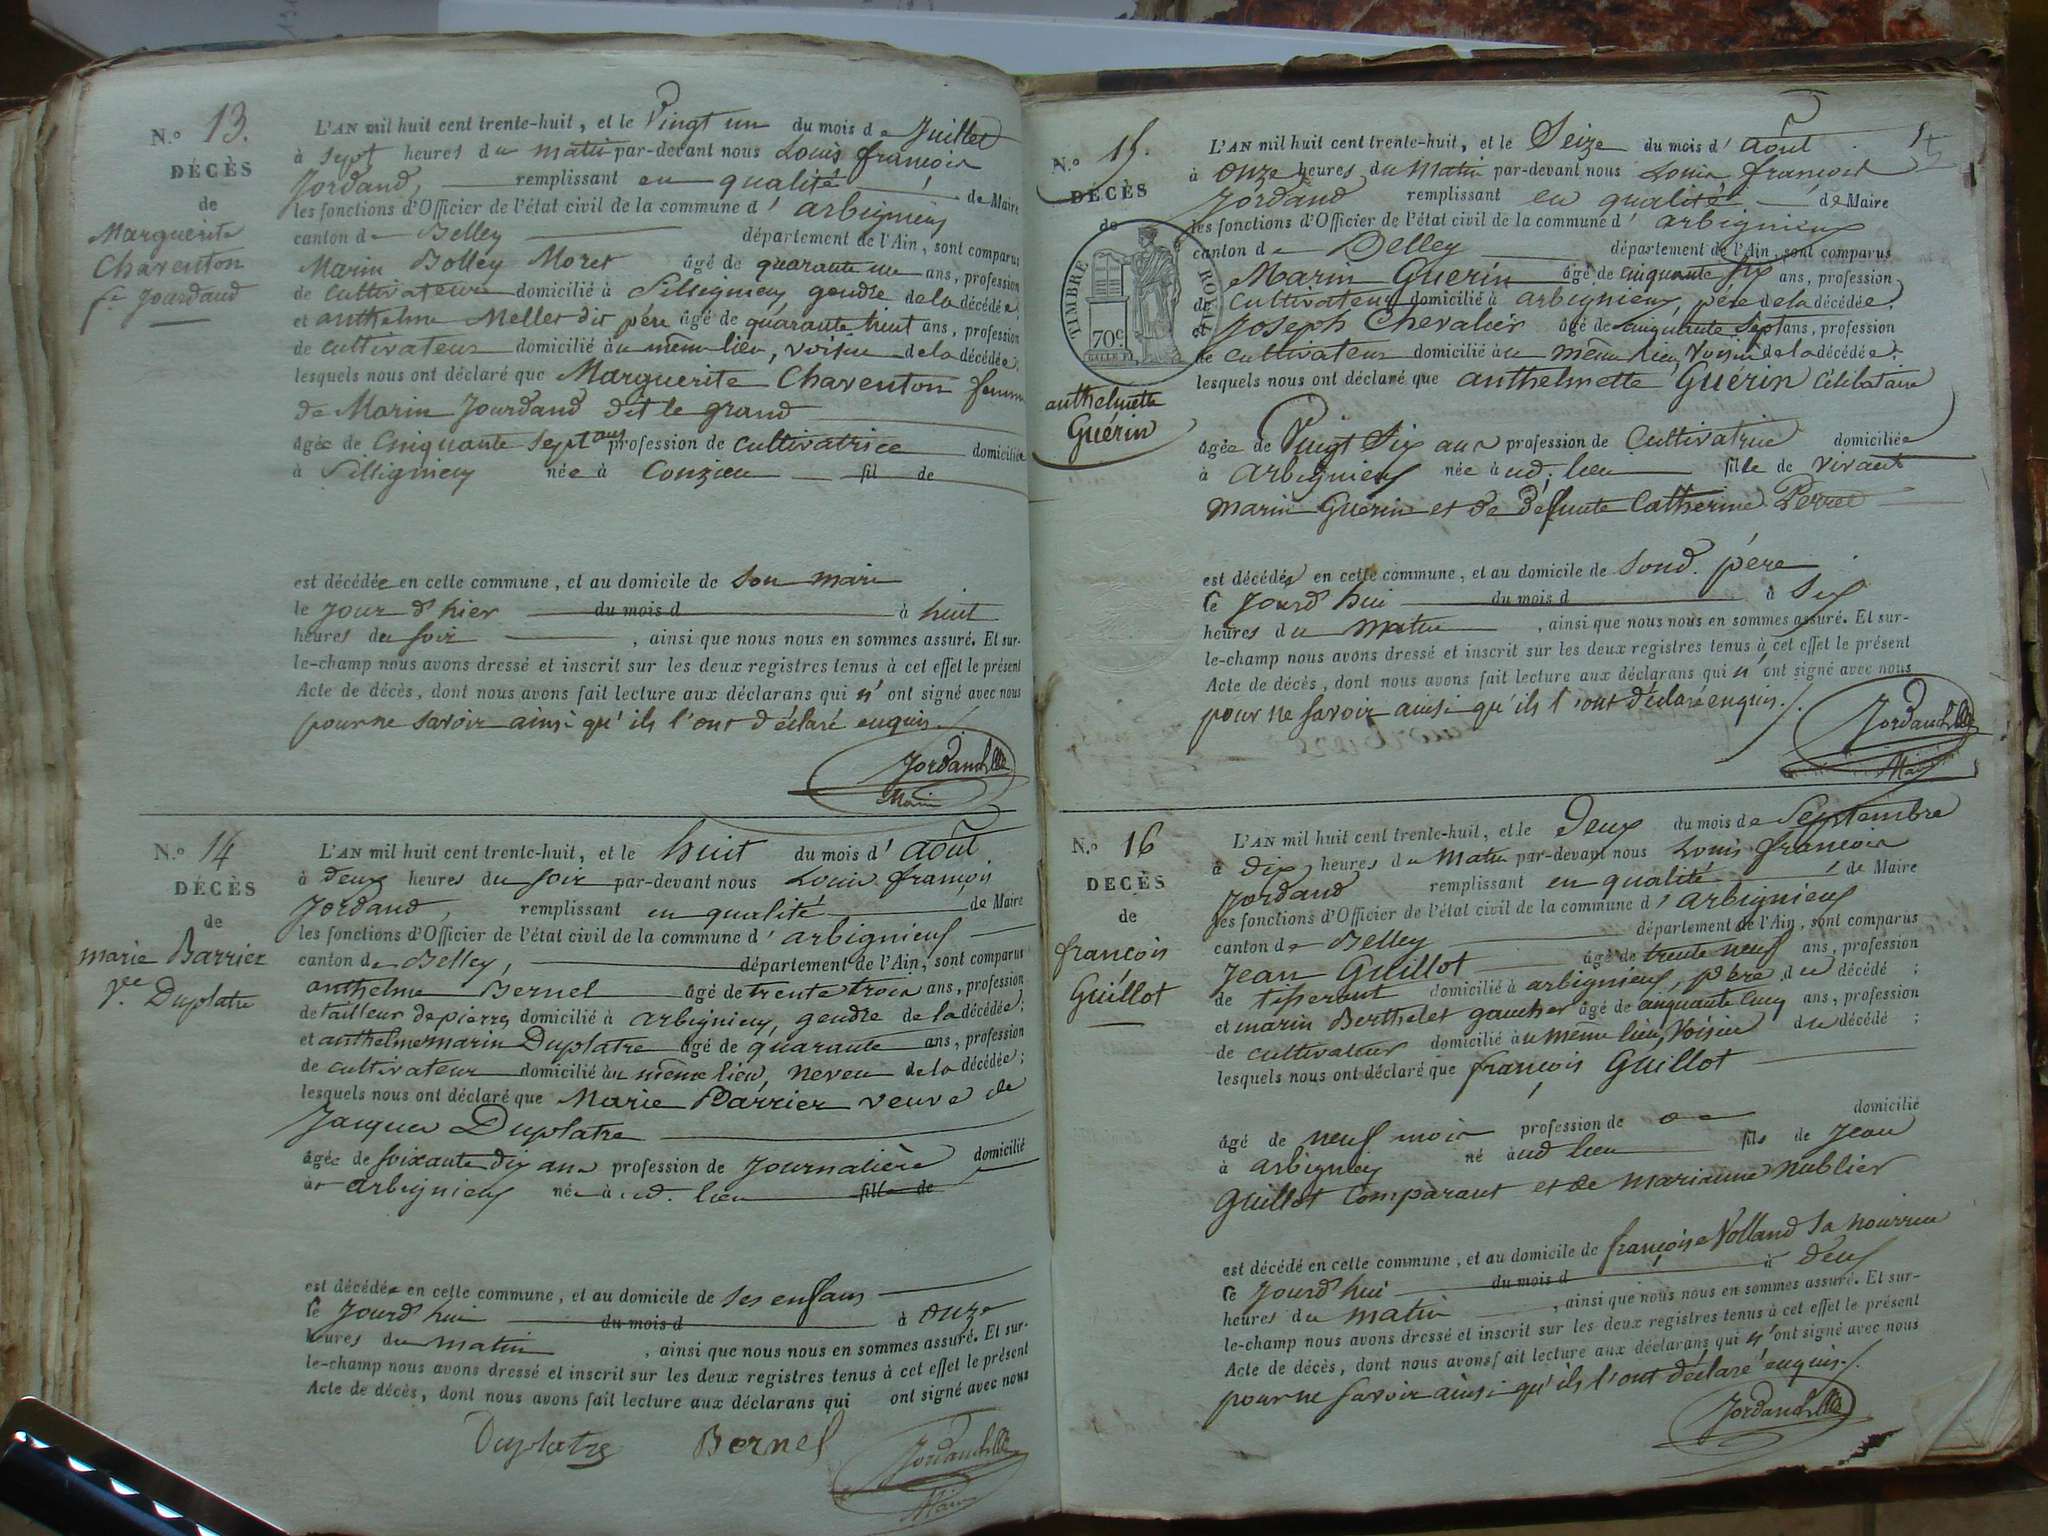 N.o 13.
DÉCÈS
de
Marguerite
Charenton
fe Jourdand
L'AN mil huit cent trente-huit, et le Vingt un du mois de Juillet
à sept heures du matin par-devant nous Louis françois
Jordand, remplissant en qualité de Maire
les fonctions d'Officier de l'état civil de la commune d'arbignieu
canton de Belley département de l'Ain, sont comparus
Marin Bolley Moret âgé de quarante un ans, profession
de cultivateur domicilié à Sillignieu, gendre de la décédée;
et anthelme Mellet dit père âgé de quarante huit ans, profession
de cultivateur domicilié au même lieu, voisin de la décédée;
lesquels nous ont déclaré que Marguerite Charenton femme
de Marin Jourdand dit le grand
âgée de Cinquante sept ans profession de cultivatrice domiciliée
à Sillignieu née à Conzieu fil de
est décédée en cette commune, et au domicile de son mari
le jour d'hier du mois d à huit
heures du soir, ainsi que nous nous en sommes assuré. Et sur-
le-champ nous avons dressé et inscrit sur les deux registres tenus à cet effet le présent
Acte de décès, dont nous avons fait lecture aux déclarans qui n'ont signé avec nous
pour ne savoir ainsi qu'ils l'ont déclaré enquis./.
Jordand
Maire
N.o 14
DÉCÈS
de
marie Barrier
Ve. Duplatre
L'AN mil huit cent trente-huit, et le huit du mois d'août
à deux heures du soir par-devant nous Louis françois
Jordand, remplissant en qualité de Maire
les fonctions d'Officier de l'état civil de la commune d'arbignieu
canton de Belley, département de l'Ain, sont comparus
anthelme Bernel âgé de trente trois ans, profession
de tailleur de pierres domicilié à arbignieu, gendre de la décédée;
et anthelme marin Duplatre âgé de quarante ans, profession
de cultivateur domicilié au même lieu, neveu de la décédée;
lesquels nous ont déclaré que Marie Barrier veuve de
Jacques Duplatre
âgée de soixante dix ans profession de journalière domicilié
à arbignieu née à ud. lieu fille de
est décédée en cette commune, et au domicile de ses enfans
le jourd'hui du mois d à onze
heures du matin, ainsi que nous nous en sommes assuré. Et sur-
le-champ nous avons dressé et inscrit sur les deux registres tenus à cet effet le présent
Acte de décès, dont nous avons fait lecture aux déclarans qui ont signé avec nous
Duplatre Bernel Jordand
Maire
15
N.o 15.
DÉCÈS
de
TIMBRE ROYAL
70c
anthelmette
Guérin
L'AN mil huit cent trente-huit, et le Seize du mois d'août
à onze heures du matin par-devant nous Louis françois
Jordand remplissant en qualité de Maire
les fonctions d'Officier de l'état civil de la commune d'arbignieu
canton de Belley département de l'Ain, sont comparus
Marin Guerin âgé de cinquante six ans, profession
de cultivateur domicilié à arbignieu, père de la décédée;
et Joseph Chevalier âgé de cinquante sept ans, profession
de cultivateur domicilié au même lieu, voisin de la décédée;
lesquels nous ont déclaré que anthelmette Guérin célibataire
âgée de Vingt Six ans profession de Cultivatrice domiciliée
à arbignieu née à ud. lieu fille de vivant
Marin Guérin et de défunte Catherine Perret
est décédée en cette commune, et au domicile de sond. père
le jourd'hui du mois d à six
heures du matin, ainsi que nous nous en sommes assuré. Et sur-
le-champ nous avons dressé et inscrit sur les deux registres tenus à cet effet le présent
Acte de décès, dont nous avons fait lecture aux déclarans qui n'ont signé avec nous
pour ne savoir ainsi qu'ils l'ont déclaré enquis./.
Jordand
Maire
N.o 16
DÉCÈS
de
françois
Guillot
L'AN mil huit cent trente-huit, et le Deux du mois de Septembre
à dix heures du matin par-devant nous Louis françois
Jordand remplissant en qualité de Maire
les fonctions d'Officier de l'état civil de la commune d'arbignieu
canton de Belley département de l'Ain, sont comparus
Jean Guillot âgé de trente neuf ans, profession
de tisserant domicilié à arbignieu, père du décédé;
et marin Berthelet gaucher âgé de cinquante cinq ans, profession
de cultivateur domicilié au même lieu, voisin du décédé;
lesquels nous ont déclaré que françois Guillot
âgé de neuf mois profession de domicilié
à arbignieu né à ud lieu fils de Jean
Guillot comparant et de marianne Nublier
est décédé en cette commune, et au domicile de françoise Volland sa nourrice
le jourd'hui du mois d à deux
heures du matin, ainsi que nous nous en sommes assuré. Et sur-
le-champ nous avons dressé et inscrit sur les deux registres tenus à cet effet le présent
Acte de décès, dont nous avons fait lecture aux déclarans qui n'ont signé avec nous
pour ne savoir ainsi qu'ils l'ont déclaré enquis./.
Jordand